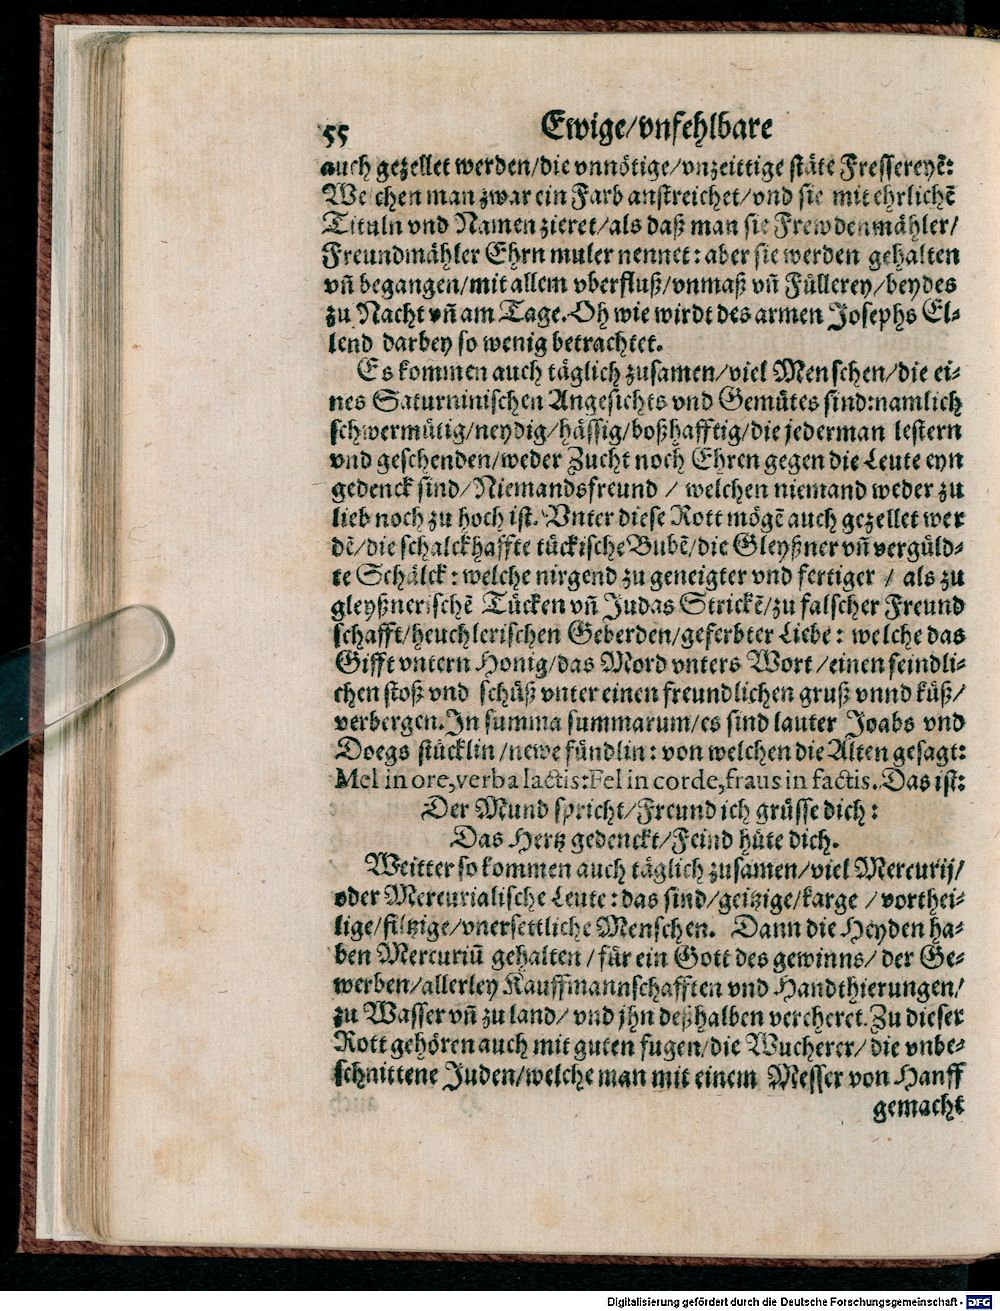 55 Ewige/vnfehlbare
auch gezellet werden/die vnnötige/vnzeittige stäte Fressereyẽ:
We chen man zwar ein Farb anstreichet/vnd sie mit ehrlichẽ
Tituln vnd Namen zieret/als daß man sie Frewdenmähler/
Freundmähler Ehrn muler nennet: aber sie werden gehalten
vñ begangen/mit allem vberfluß/vnmaß vñ Füllerey/beydes
zu Nacht vñ am Tage. Oh wie wirdt des armen Josephs El-
lend darbey so wenig betrachtet.
Es kommen auch täglich zusamen/viel Menschen/die ei-
nes Saturninischen Angesichts vnd Gemütes sind: namlich
schwermütig/neydig/hässig/boßhafftig/die jederman lestern
vnd geschenden/weder Zucht noch Ehren gegen die Leute eyn
gedenck sind/Niemandsfreund / welchen niemand weder zu
lieb noch zu hoch ist. Vnter diese Rott mögẽ auch gezellet wer
dẽ/die schalckhaffte tückische Bubẽ/die Gleyßner vñ vergüld-
te Schälck: welche nirgend zu geneigter vnd fertiger / als zu
gleyßnerischẽ Tücken vñ Judas Strickẽ/zu falscher Freund
schafft/heuchlerischen Geberden/geferbter Liebe: welche das
Gifft vntern Honig/das Mord vnters Wort/einen feindli-
chen stoß vnd schüß vnter einen freundlichen gruß vnnd küß/
verbergen. In summa summarum/es sind lauter Joabs vnd
Doegs stücklin/newe fündlin: von welchen die Alten gesagt:
Mel in ore, verba lactis: Fel in corde, fraus in factis. Das ist:
Der Mund spricht/Freund ich grüsse dich:
Das Hertz gedenckt/Feind hüte dich.
Weitter so kommen auch täglich zusamen/viel Mercurij/
oder Mercurialische Leute: das sind/geitzige/karge / vorthei-
lige/filtzige/vnersettliche Menschen. Dann die Heyden ha-
ben Mercuriũ gehalten/für ein Gott des gewinns/der Ge-
werben/allerley Kauffmannschafften vnd Handthierungen/
zu Wasser vñ zu land/vnd jhn deßhalben vereheret. Zu dieser
Rott gehören auch mit guten fugen/die Wucherer/die vnbe-
schnittene Juden/welche man mit einem Messer von Hanff
gemacht
Digitalisierung gefördert durch die Deutsche Forschungsgemeinschaft - DFG